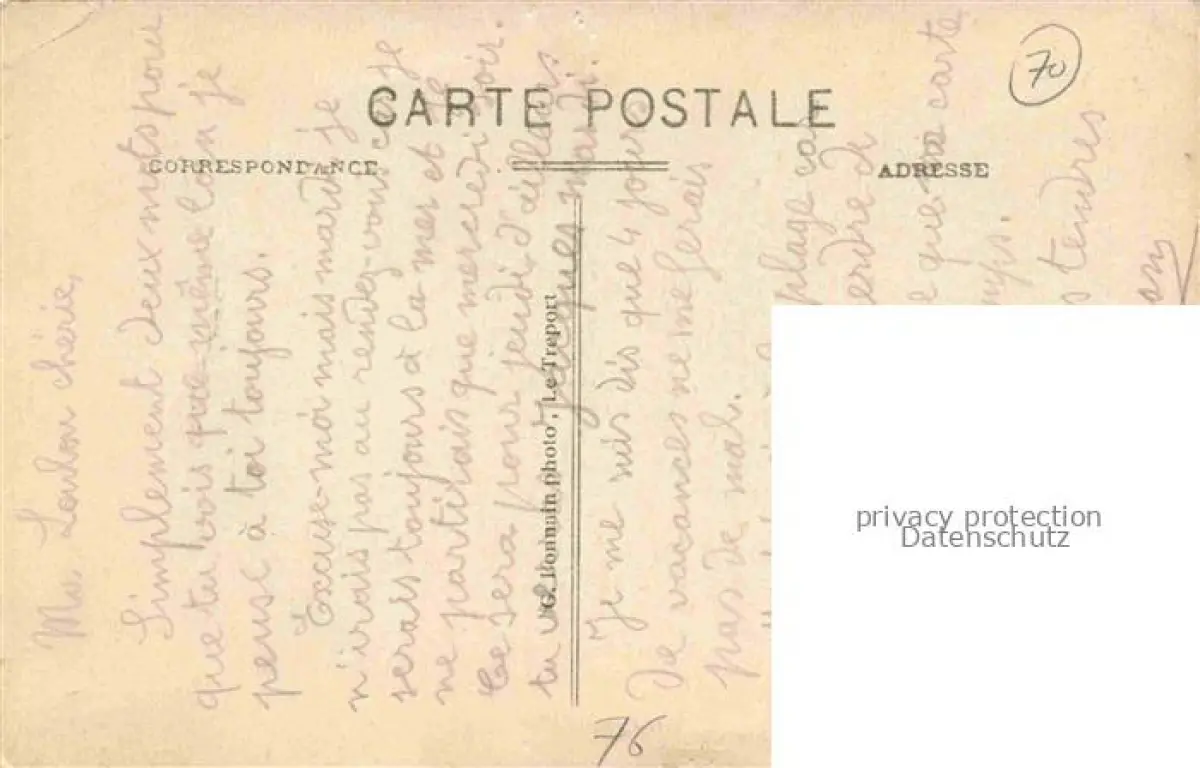 CARTE POSTALE
CORRESPONDANCE
ADRESSE
70
Ma Loulou chérie,
Simplement deux mots pour
que tu vois que même loin je
pense à toi toujours.
Excuse-moi mais mardi je
n'irais pas au rendez-vous car je
serais toujours à la mer et je
ne partirais que mercredi soir.
Ce sera pour jeudi d'ailleurs
tu mardi.
Je me suis dis que 4 jours
de vacances ne me ferais
pas de mal.
plage car
perdre de
que ma carte
tendres
G. Bonnain photo, Le Treport
76
privacy protection
Datenschutz